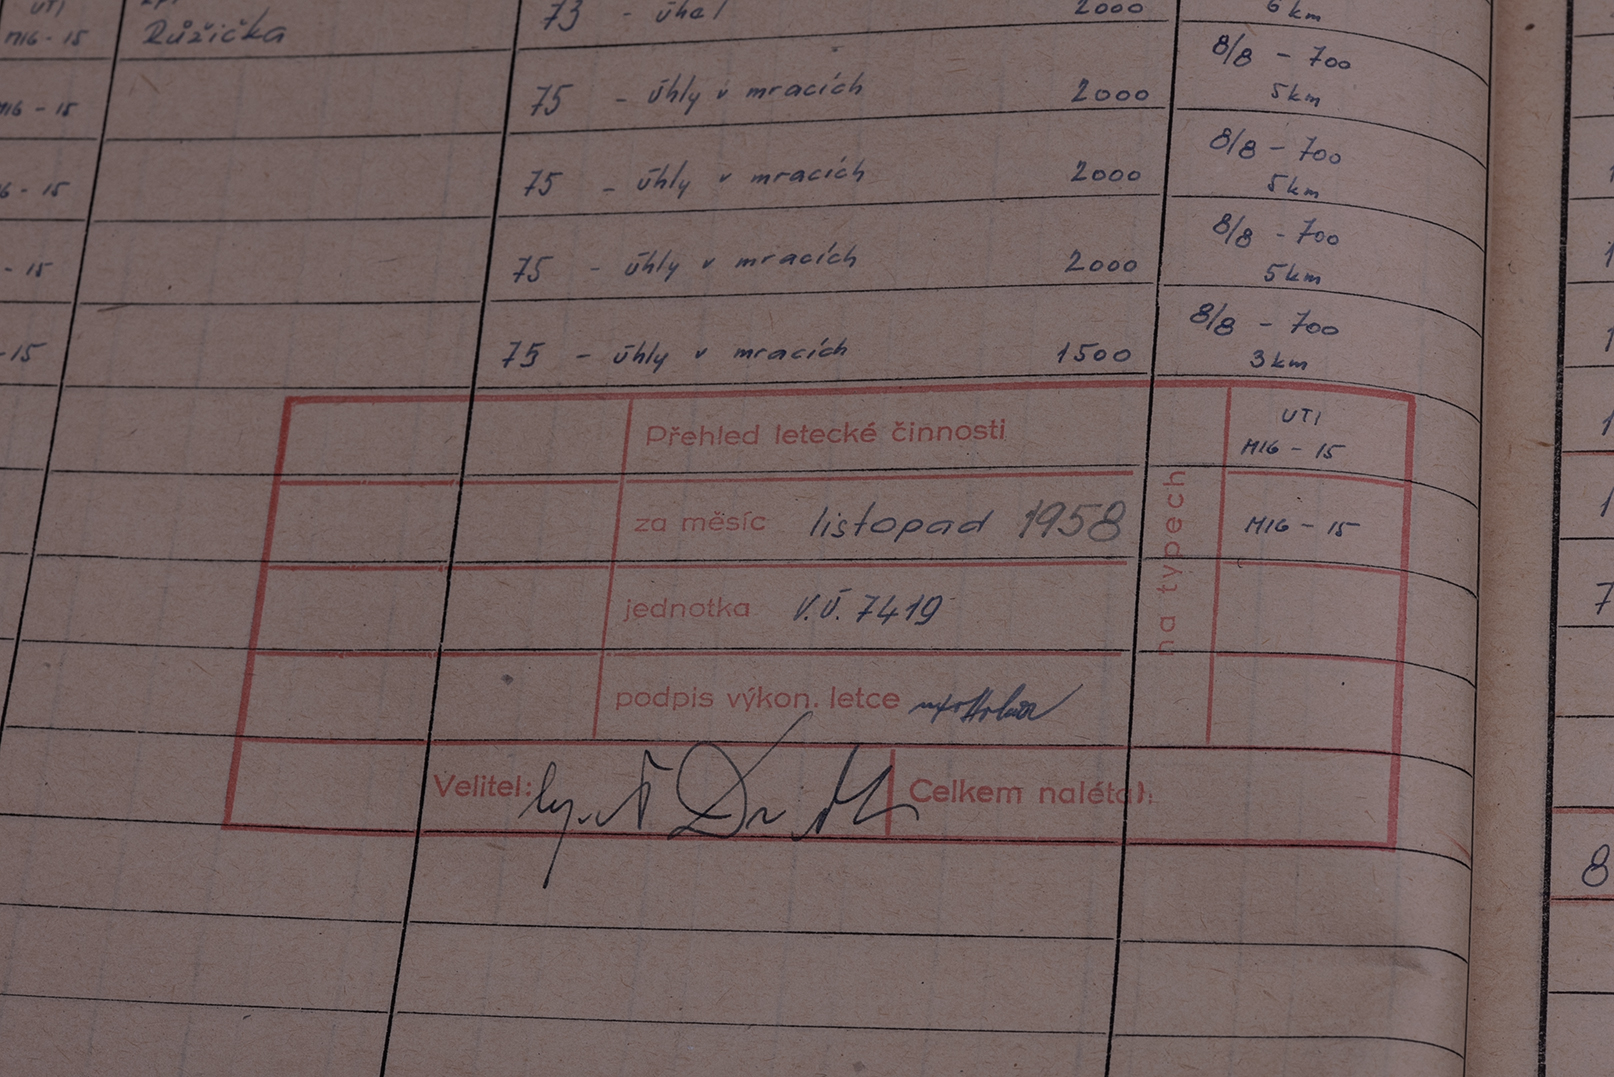 UTI
M16 - 15 Růžička 73 - úhel 2000 6 km
8/8 - 700
M16 - 15 75 - úhly v mracích 2000 5 km
8/8 - 700
6 - 15 75 - úhly v mracích 2000 5 km
8/8 - 700
- 15 75 - úhly v mracích 2000 5 km
8/8 - 700
-15 75 - úhly v mracích 1500 3 km
Přehled letecké činnosti
UTI
M16 - 15
za měsíc listopad 1958
M16 - 15
na typech
jednotka V.Ú. 7419
podpis výkon. letce
Velitel:
Celkem nalétal:
7
8